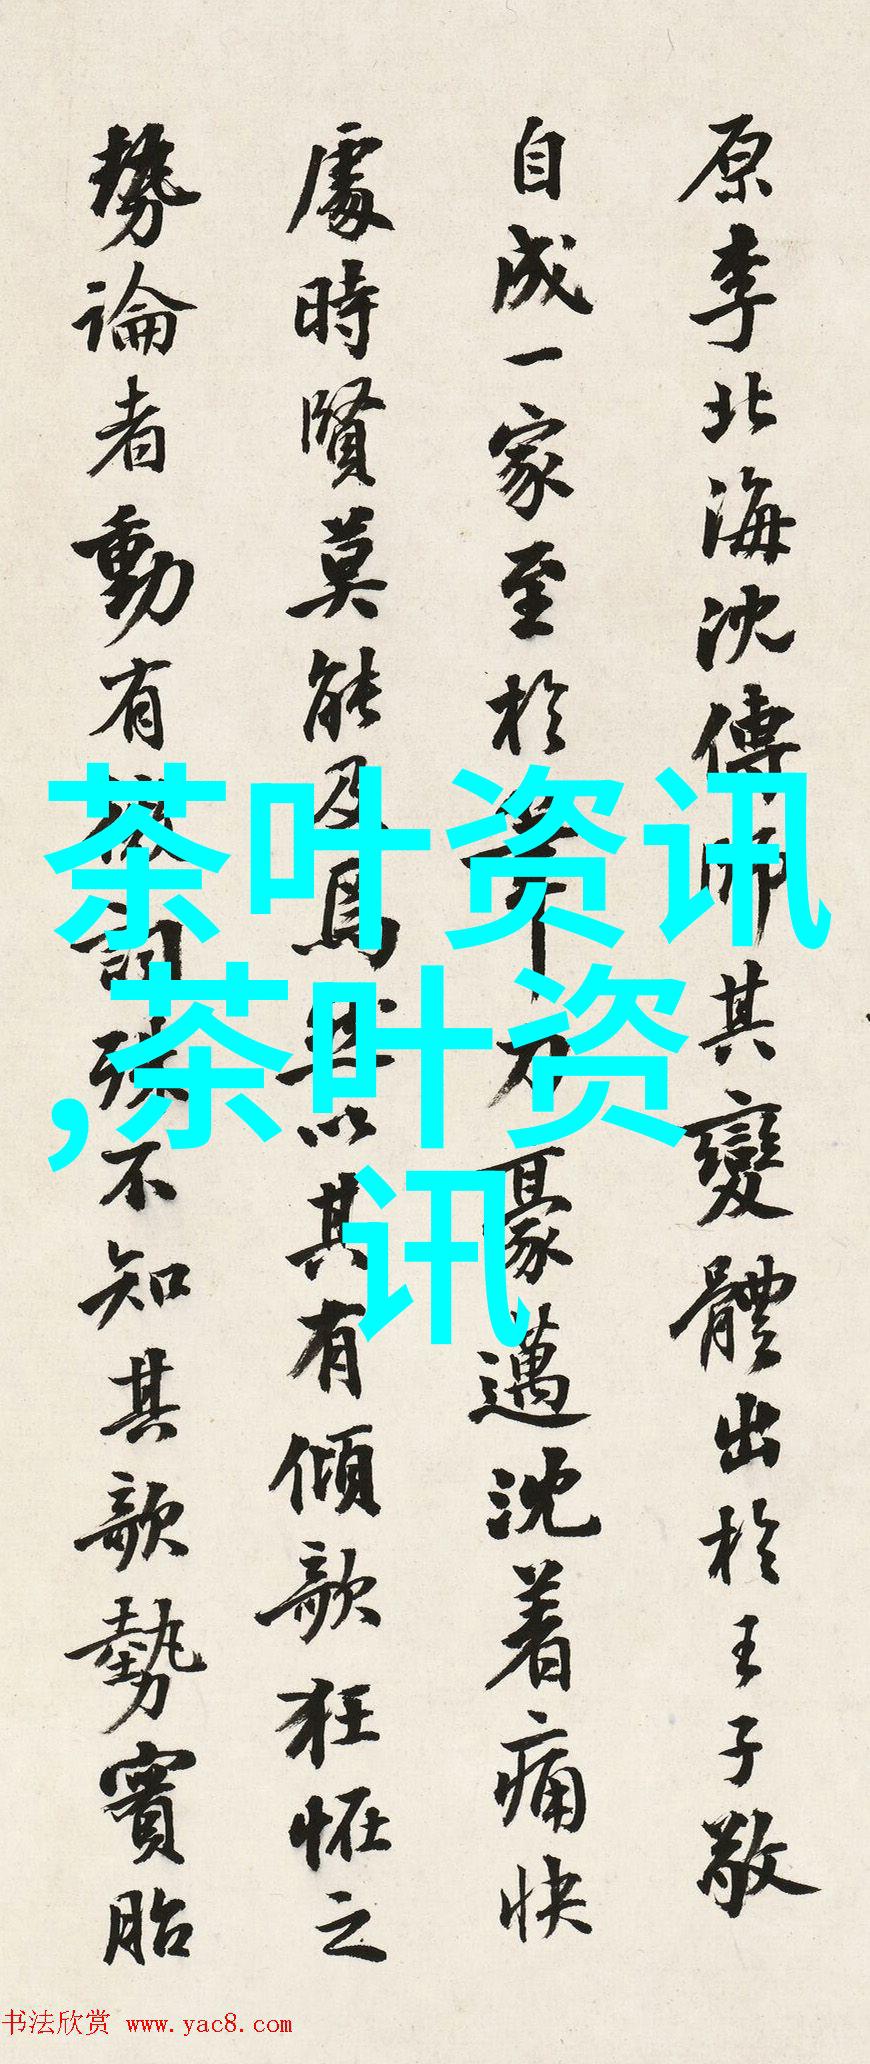 原李北海沈傳師其變體出於王子敬
自成一家至於筆力豪邁沈着痛快
處時賢莫能及焉然以其有傾欹狂怪之
勢論者動有微詞殊不知其欹勢實胎
茶叶资讯
,茶叶资
讯
书法欣赏 www.yac8.com